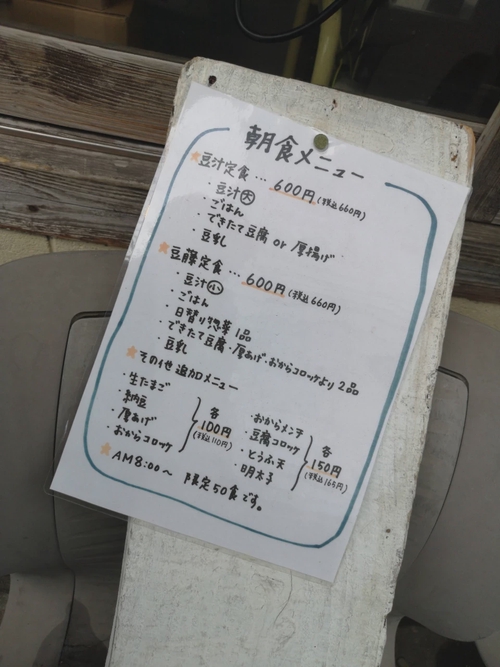 朝食メニュー
★豆汁定食…600円(税込660円)
・豆汁㊛大
・ごはん
・できたて豆腐 or 厚揚げ
・豆乳
★豆藤定食…600円(税込660円)
・豆汁小
・ごはん
・日替り惣菜1品
・できたて豆腐・厚あげ・おからコロッケより2品
・豆乳
★その他 追加メニュー
・生たまご
・納豆
・厚あげ
・おからコロッケ
各
100円
(税込110円)
・おからメンチ
・豆腐コロッケ
・とうふ天
・明太子
各
150円
(税込165円)
★AM8:00〜 限定50食です。